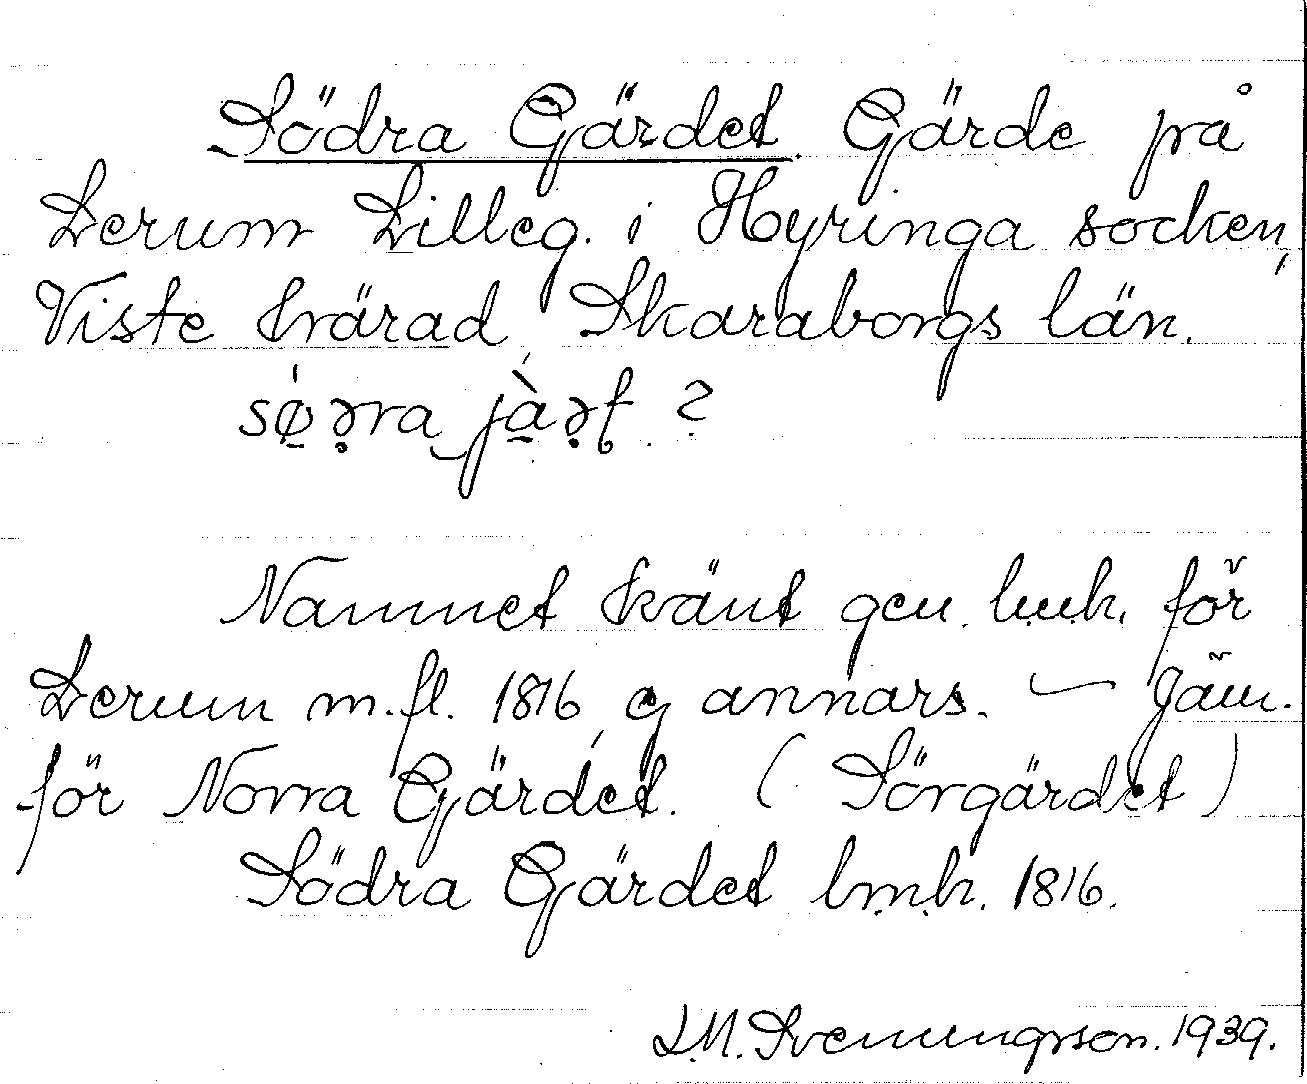 Södra Gärdet. Gärde på
Lerum Lilleg. i Hyringa socken,
Viste härad, Skaraborgs län.
?
Namnet känt gen. lmh. för
Lerum m.fl. 1816, ej annars. — Jäm.
för Norra Gärdet. (Sörgärdet)
Södra Gärdet lmh. 1816.
L.M. Svenungsson. 1939.